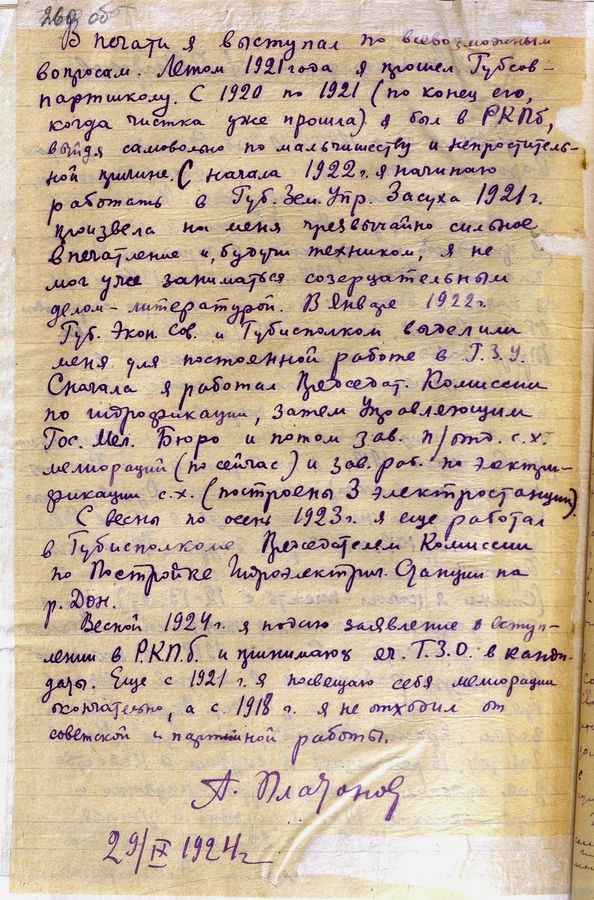 260 об
В печати я выступал по всевозможным
вопросам. Летом 1921 года я прошел Губсов-
партшколу. С 1920 по 1921 (по конец его,
когда чистка уже прошла) я был в РКПб,
выйдя самовольно по мальчишеству и непроститель-
ной причине. С начала 1922 г. я начинаю
работать в Губ. Зем. Упр. Засуха 1921 г.
произвела на меня чрезвычайно сильное
впечатление и, будучи техником, я не
мог уже заниматься созерцательным
делом - литературой. В январе 1922 г.
Губ. Экон. Сов. и Губисполком выделили
меня для постоянной работе в Г.З.У.
Сначала я работал Председат. Комиссии
по гидрофикации, затем Управляющим
Гос. Мел. Бюро и потом зав. п/отд. с.х.
мелиораций (по сейчас) и зав. раб. по электри-
фикации с.х. (построены 3 электростанции).
С весны по осень 1923 г. я еще работал
в Губисполкоме Председателем Комиссии
по Постройке Гидроэлектрич. Станции на
р. Дон.
Весной 1924 г. я подаю заявление о вступ-
лении в Р.К.П.б. и принимаюз яч. Г.З.О. в канди-
даты. Еще с 1921 г. я посвещаю себя мелиорации
окончательно, а с 1918 г. я не отходил от
советской и партийной работы.
А. Платонов
29/IX 1924 г